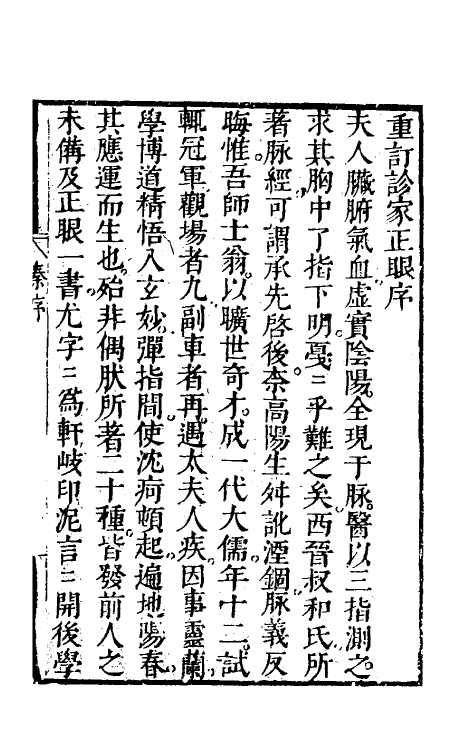 重訂診家正眼序
夫人臟腑氣血虛實陰陽全現于脉醫以三指測之
求其胸中了指下明戞〻乎難之矣西晉叔和氏所
著脉經可謂承先啓後柰高陽生舛訛湮錮脉義反
晦惟吾師士翁以曠世奇才成一代大儒年十二試
輒冠軍觀場者九副車者再遇太夫人疾因事靈蘭
學博道精悟入玄妙彈指間使沈疴頓起遍地陽春
其應運而生也殆非偶肰所著二十種皆發前人之
未備及正眼一書尤字〻爲軒岐印泥言〻開後學
秦序